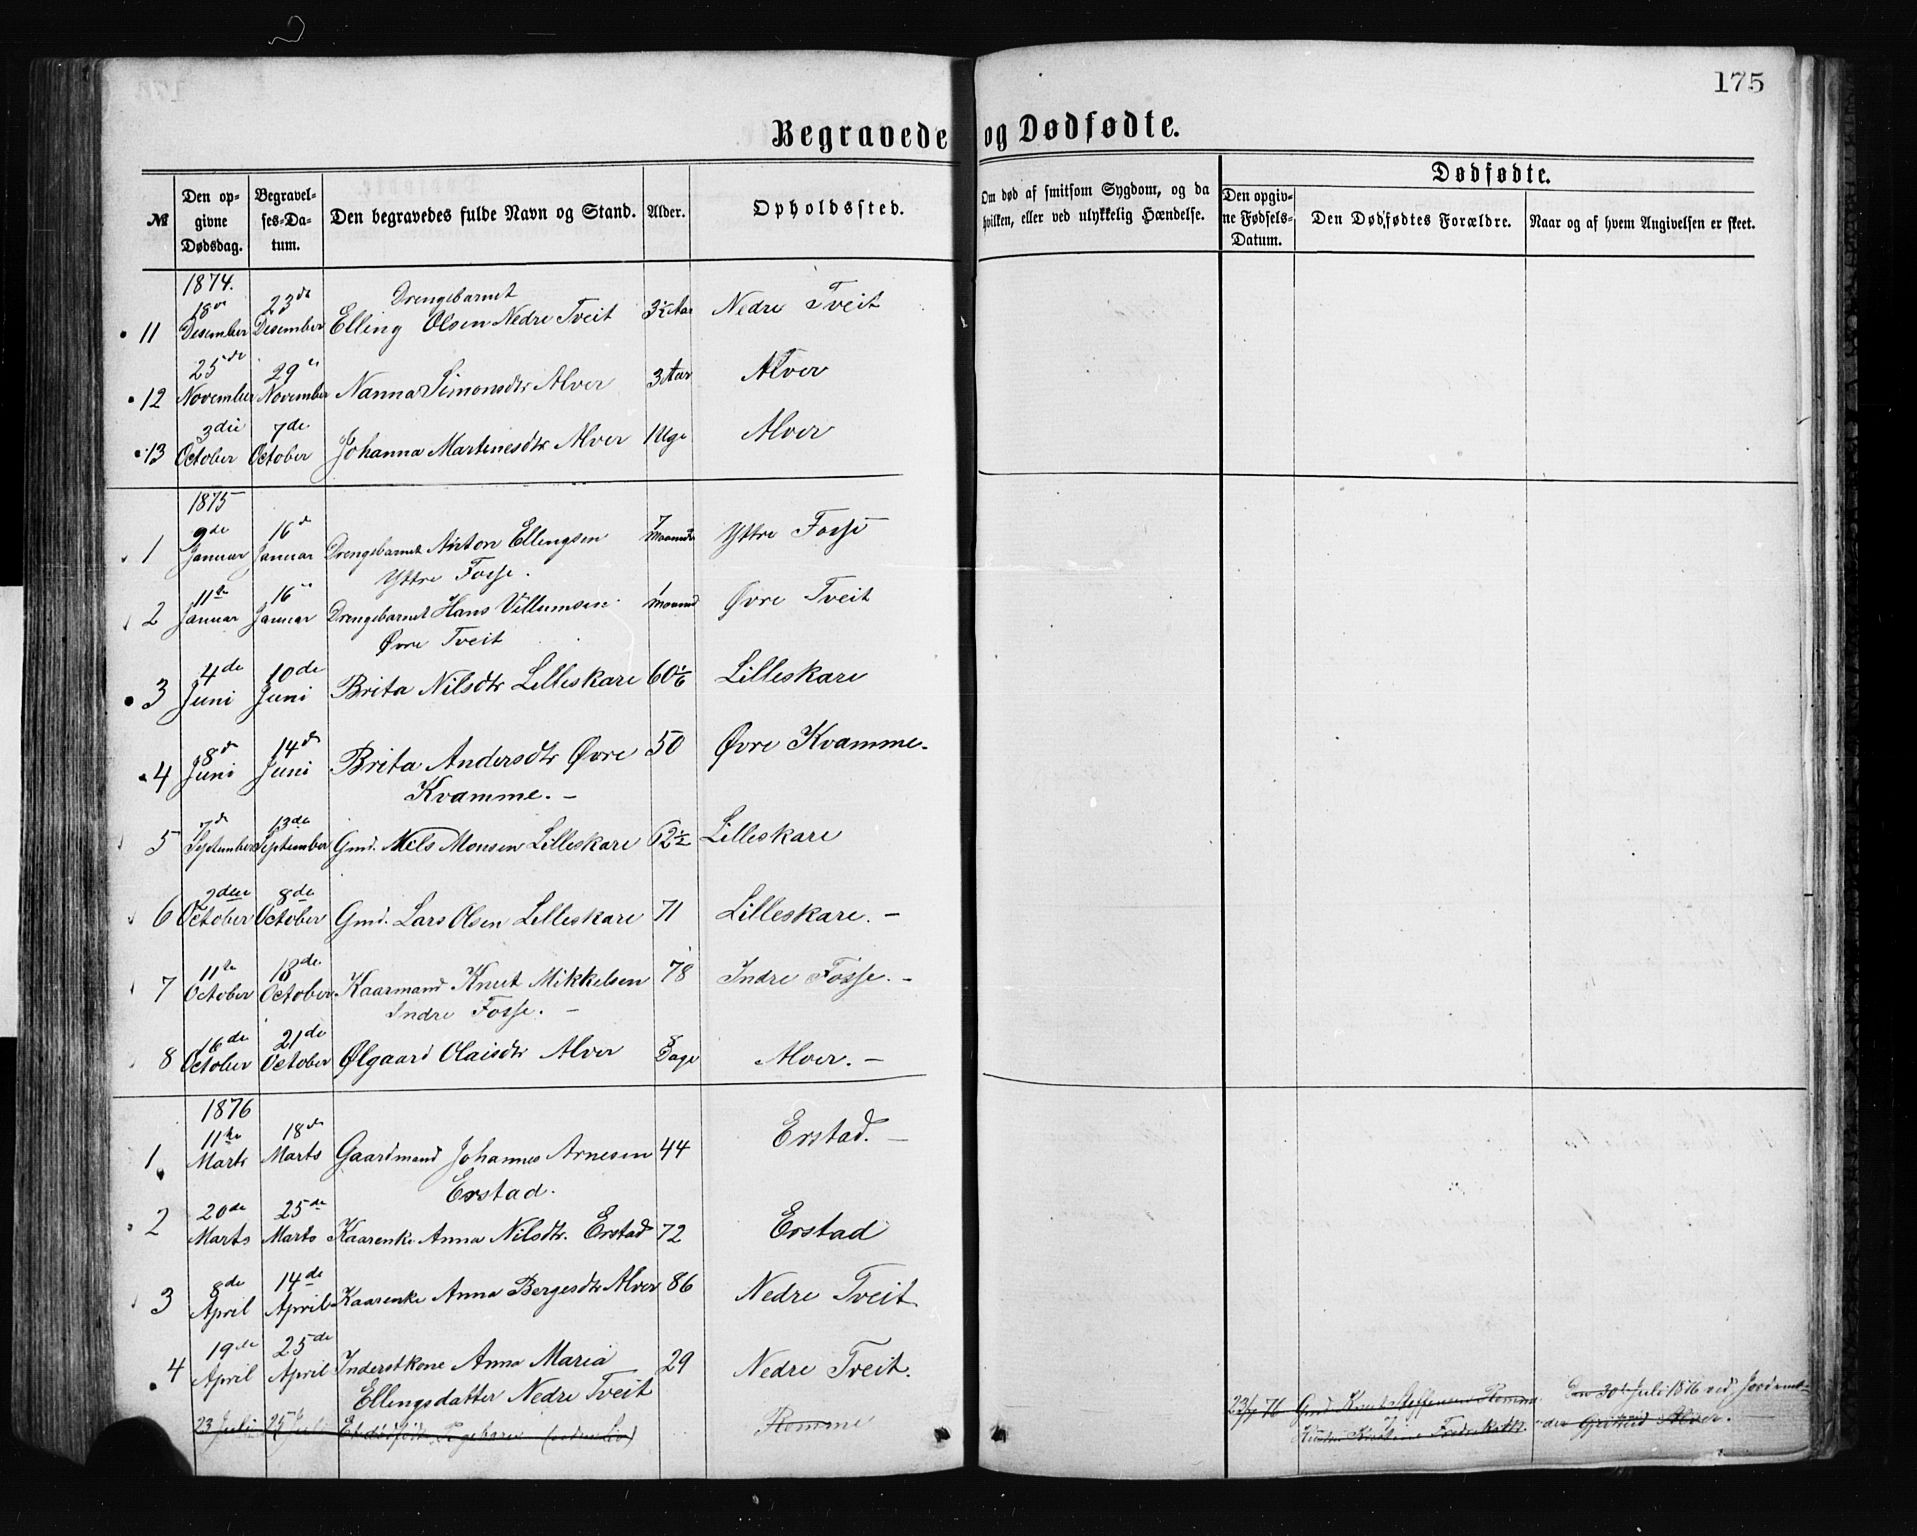 175
Begravede og Dødfødte.
№ Den opgivne Dødsdag. Begravelses-Datum. Den begravedes fulde Navn og Stand. Alder. Opholdssted. Om død af smitsom Sygdom, og da hvilken, eller ved ulykkelig Hændelse. Dødfødte. Den opgivne Fødsels-Datum. Den Dødfødtes Forældre. Naar og af hvem Angivelsen er skeet.
1874.
Drengebarnet
11 18de Desember 23de Desember Elling Olsen Nedre Tveit 3½ Aar Nedre Tveit
12 25de November 29de November Nanna Simonsdtr Alver 3 Aar Alver
13 3die October 7de October Johanna Martinesdtr Alver 1 Uge Alver
1875
1 9de Januar 16de Januar Drengebarnet Anton Ellingsen 7 Maaneder Yttre Fosse
Yttre Fosse.
2 11te Januar 16de Januar Drengebarnet Hans Villumsen 1 Maaned Øvre Tveit
Øvre Tveit
3 4de Juni 10de Juni Brita Nilsdtr Lilleskare 60 1/6 Lilleskare
4 8de Juni 14de Juni Brita Andersdtr Øvre 50 Øvre Kvamme.
Kvamme. —
5 7de September 13de September Gmd. Nils Monsen Lilleskare 62½ Lilleskare
6 2den October 8de October Gmd. Lars Olsen Lilleskare 71 Lilleskare. —
7 11te October 18de October Kaarmand Knut Mikkelsen 78 Indre Fosse. —
Indre Fosse. —
8 16de October 21de October Ølgaard Olaisdtr Alver 8 Dage Alver. —
1876
1 11te Marts 18de Marts Gaardmand Johannes Arnesen 44 Erstad. —
Erstad.
2 20de Marts 25de Marts Kaarenke Anna Nilsdtr. Erstad 72 Erstad
3 8de April 14de April Kaarenke Anna Bergesdtr Alver 86 Nedre Tveit
4 19de April 25de April Inderstkone Anna Maria 29 Nedre Tveit.
Ellingsdatter Nedre Tveit
23 Juli 25de Juli Et dødfødt Pigebarn (uden Liv) Romme 23/7 76 Gmd Knut Steffensen Romme Den 30te Juli 1876 ved Jordemo-
Hustru Fredriksdtr. der Alver.